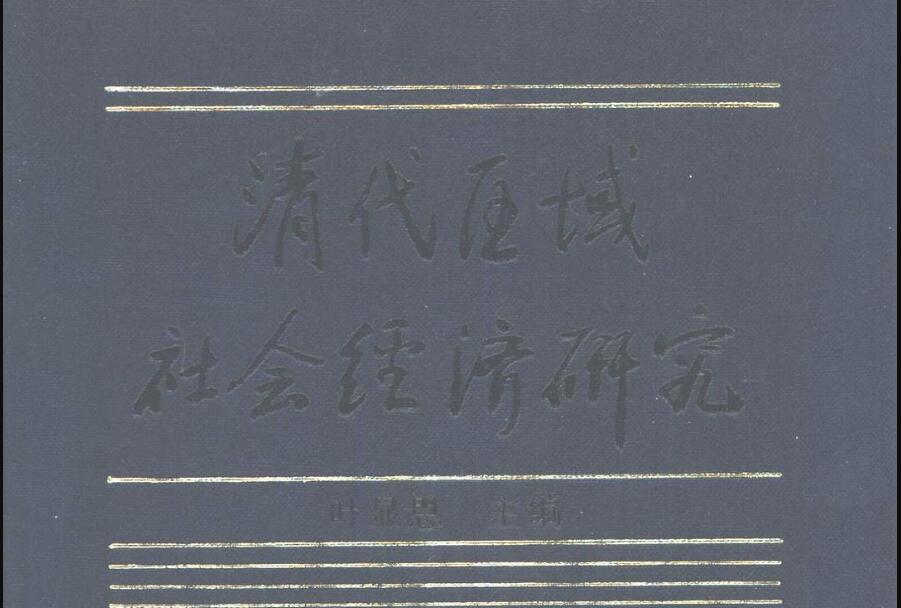 清代区域
社会经济研究
叶显恩 主编